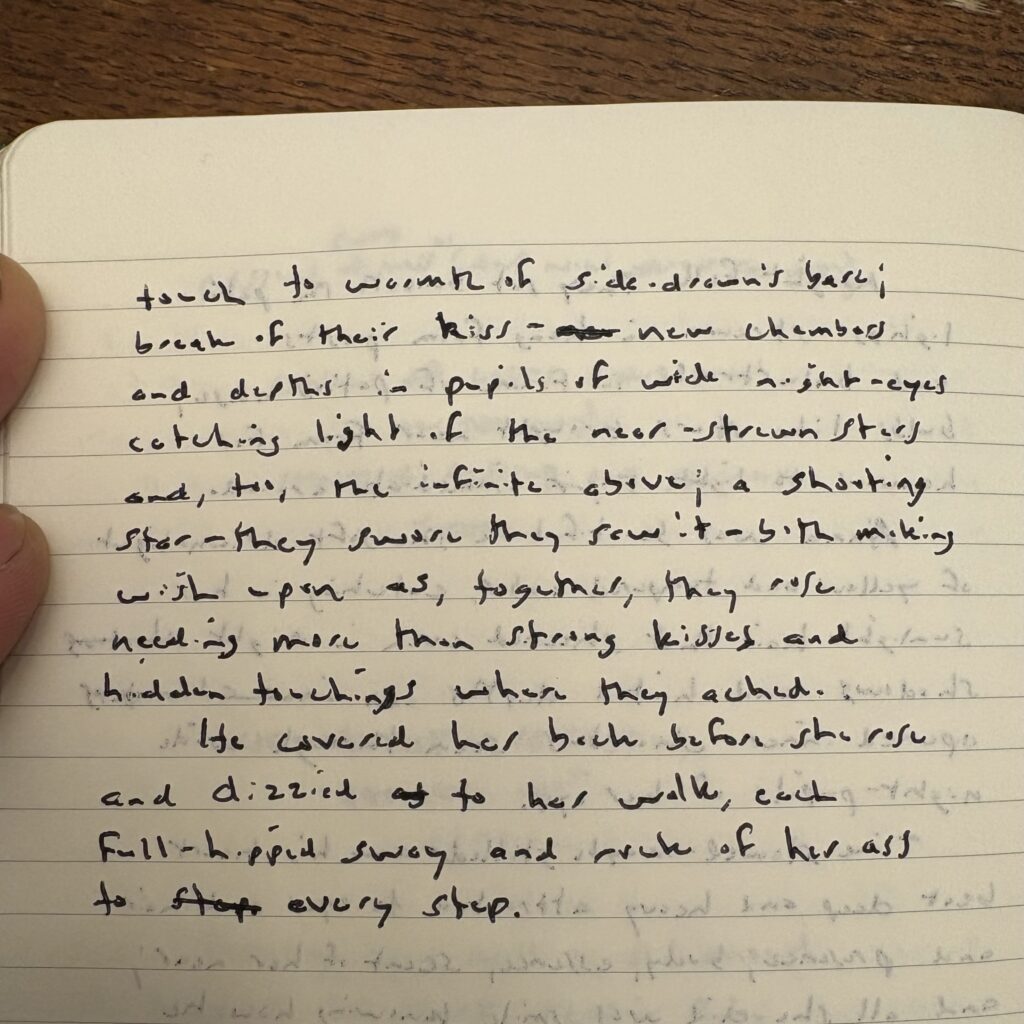 touch to warmth of side-drawn's bare;
break of their kiss - new chambers
and depths in pupils of wide night-eyes
catching light of the near-strewn stars
and, too, the infinite above; a shooting
star - they swore they saw it - both making
wish upon as, together, they rose
needing more than strong kisses and
hidden touchings where they ached.
He covered her back before she rose
and dizzied to her walk, each
full-hipped sway and rock of her ass
to every step.